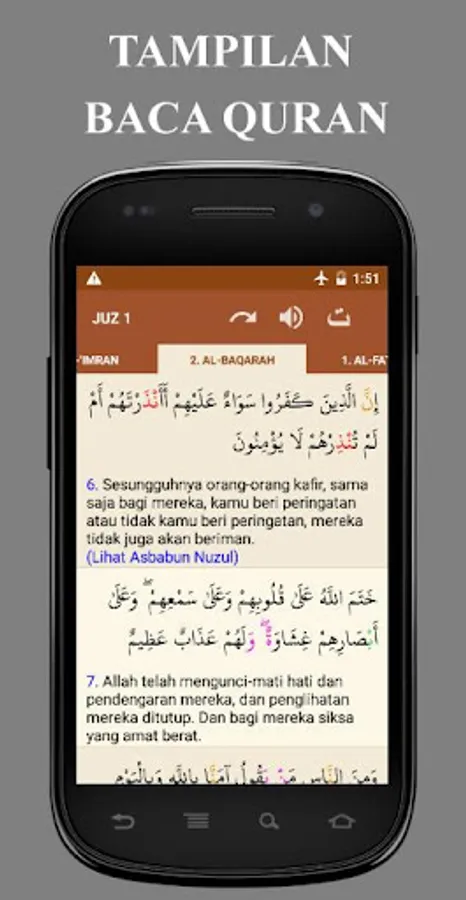 TAMPILAN
BACA QURAN
1:51
JUZ 1
ت
-'IMRAN 2. AL-BAQARAH 1. AL-FAT
إِنَّ الَّذِينَ كَفَرُوا سَوَاءٌ عَلَيْهِمْ أَأَنْذَرْتَهُمْ أَمْ
لَمْ تُنْذِرْهُمْ لَا يُؤْمِنُونَ
6. Sesungguhnya orang-orang kafir, sama
saja bagi mereka, kamu beri peringatan
atau tidak kamu beri peringatan, mereka
tidak juga akan beriman.
(Lihat Asbabun Nuzul)
خَتَمَ اللَّهُ عَلَىٰ قُلُوبِهِمْ وَعَلَىٰ سَمْعِهِمْ ۖ وَعَلَىٰ
أَبْصَارِهِمْ غِشَاوَةٌ ۖ وَلَهُمْ عَذَابٌ عَظِيمٌ
7. Allah telah mengunci-mati hati dan
pendengaran mereka, dan penglihatan
mereka ditutup. Dan bagi mereka siksa
yang amat berat.
وَمِنَ النَّاسِ مَنْ يَقُولُ آمَنَّا بِاللَّهِ وَبِالْيَوْمِ